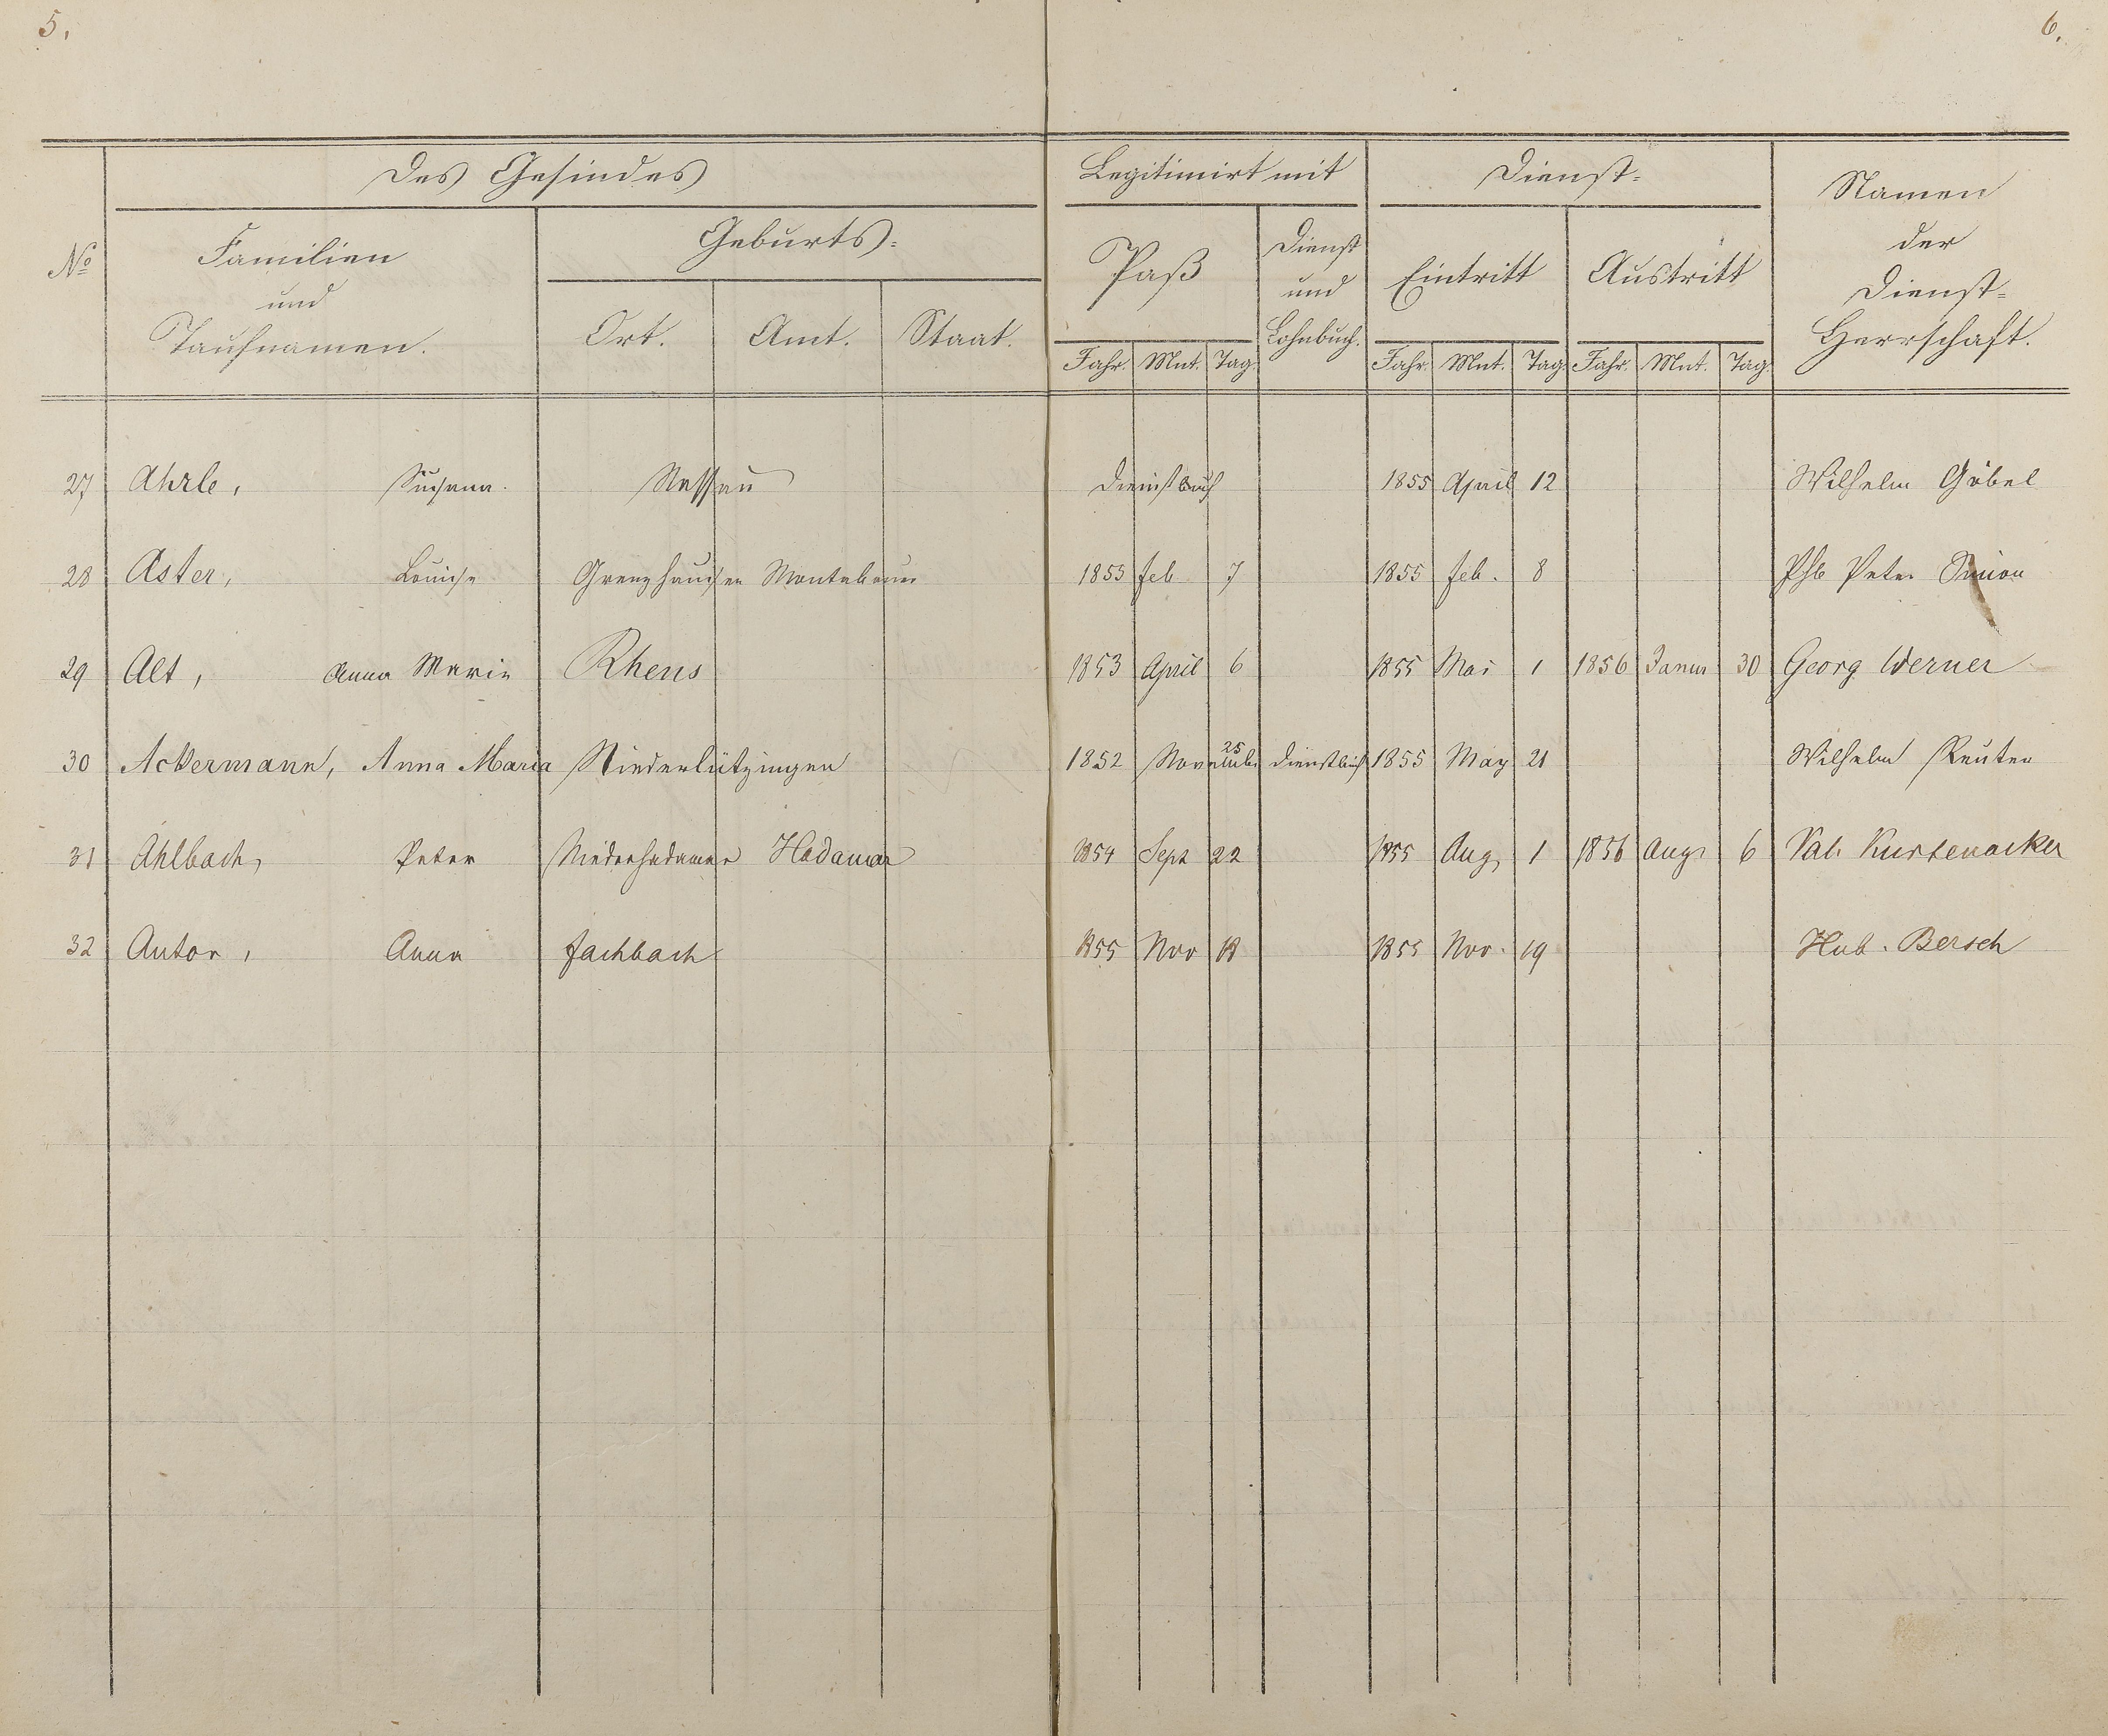 5.
6.
Des Gesindes
Legitimirt mit
Dienst-
Namen
der
Dienst-
Herrschaft.
No
Familien
und
Taufnamen.
Geburts-
Ort. Amt. Staat.
Paß
Dienst
und
Lohnbuch.
Eintritt
Austritt
Jahr. Mnt. Tag. Jahr. Mnt. Tag. Jahr. Mnt. Tag.
27 Ahrle, Susana. Nassau Dienstbuch 1855 April 12 Wilhelm Göbel
28 Aster, Louise Grenzhausen Montabaur 1853 feb 7 1855 feb. 8 Peter Simon
29 Alt, Anna Marie Rhens 1853 April 6 1855 Mai 1 1856 Janur 30 Georg Werner
30 Ackermann, Anna Maria Niederlützingen 1852 Novembr 25 Dienstbuch 1855 May 21 Wilhelm Reuter
31 Ahlbach, Peter Niederhadamar Hadamar 1854 Sept 22 1855 Aug 1 1856 Aug 6 Val. Kurtenacker
32 Antor, Anna fachbach 1855 Nov 18 1855 Nov. 19 Hub. Bersch